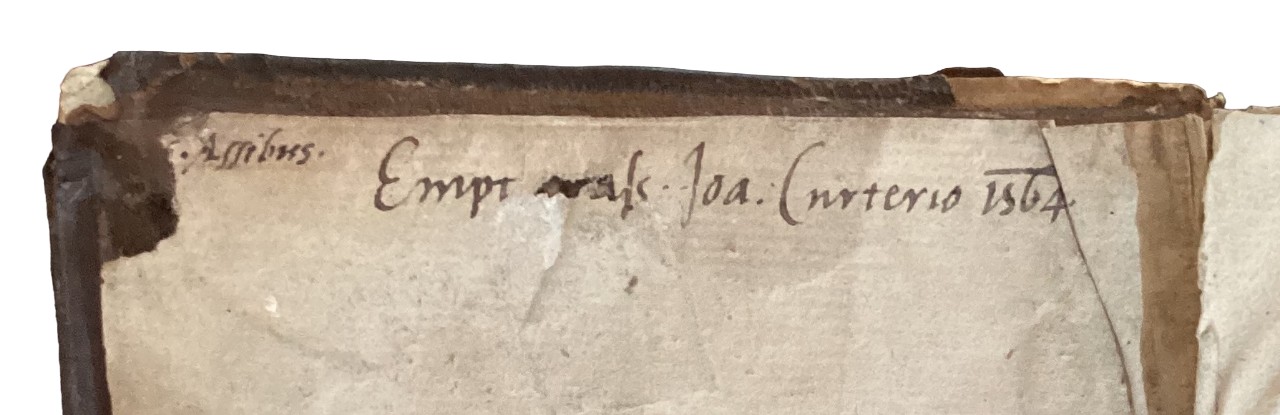 Assibus.
Empt Joa. Curterio 1564